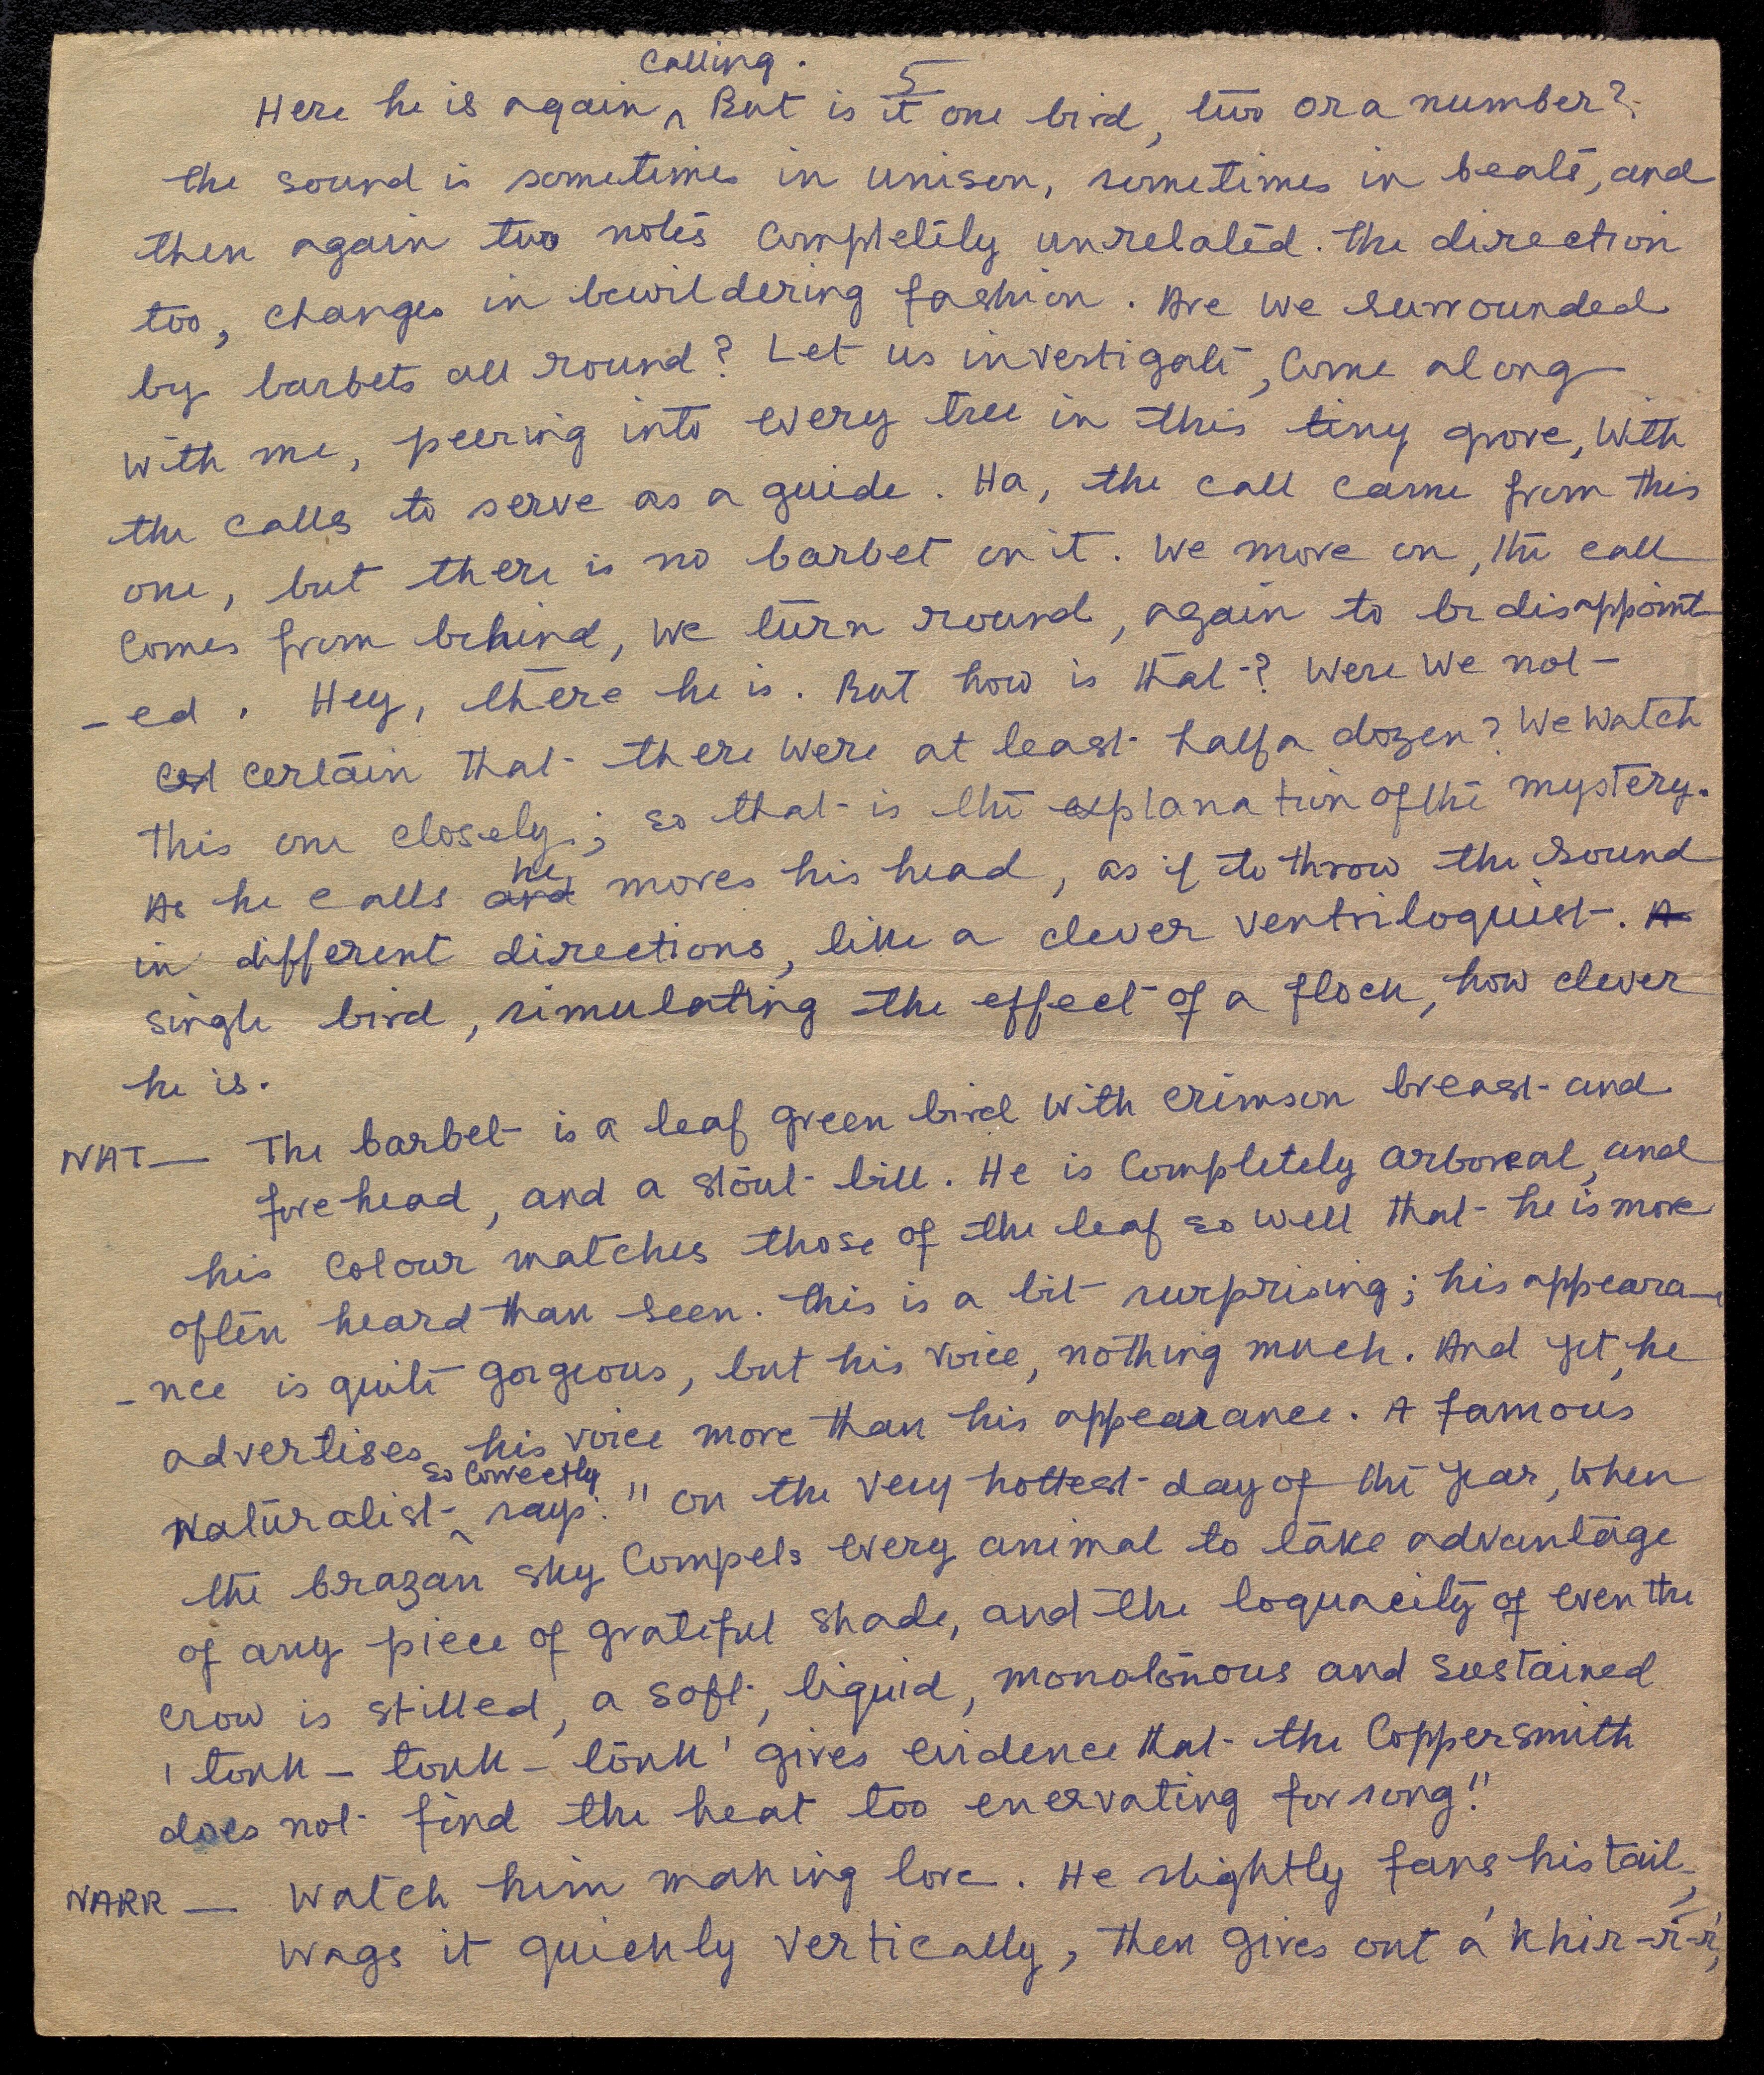 5
Here he is again calling. But is it one bird, two or a number?
The sound is sometimes in unison, sometimes in beats, and
then again two notes completely unrelated. The direction
too, changes in bewildering fashion. Are we surrounded
by barbets all round? Let us investigate, Come along
with me, peering into every tree in this tiny grove, with
the calls to serve as a guide. Ha, the call came from this
one, but there is no barbet on it. We move on, the call
comes from behind, we turn round, again to be disappoint
-ed. Hey, there he is. But how is that? Were we not
certain that there were at least half a dozen? We watch
this one closely; so that is the explanation of the mystery.
As he calls he moves his head, as if to throw the sound
in different directions, like a clever ventriloquist. A
single bird, simulating the effect of a flock, how clever
he is.
NAT — The barbet is a leaf green bird with crimson breast and
forehead, and a stout bill. He is completely arboreal, and
his colour matches those of the leaf so well that he is more
often heard than seen. This is a bit surprising; his appeara-
-nce is quite gorgeous, but his voice, nothing much. And yet, he
advertises his voice more than his appearance. A famous
Naturalist so correctly says: "On the very hottest day of the year, when
the brazan sky compels every animal to take advantage
of any piece of grateful shade, and the loquacity of even the
crow is stilled, a soft, liquid, monotonous and sustained
'tonk - tonk - tonk' gives evidence that the Coppersmith
does not find the heat too enervating for song!"
NARR — Watch him making love. He slightly fans his tail,
wags it quickly vertically, then gives out a 'khir-r-r',